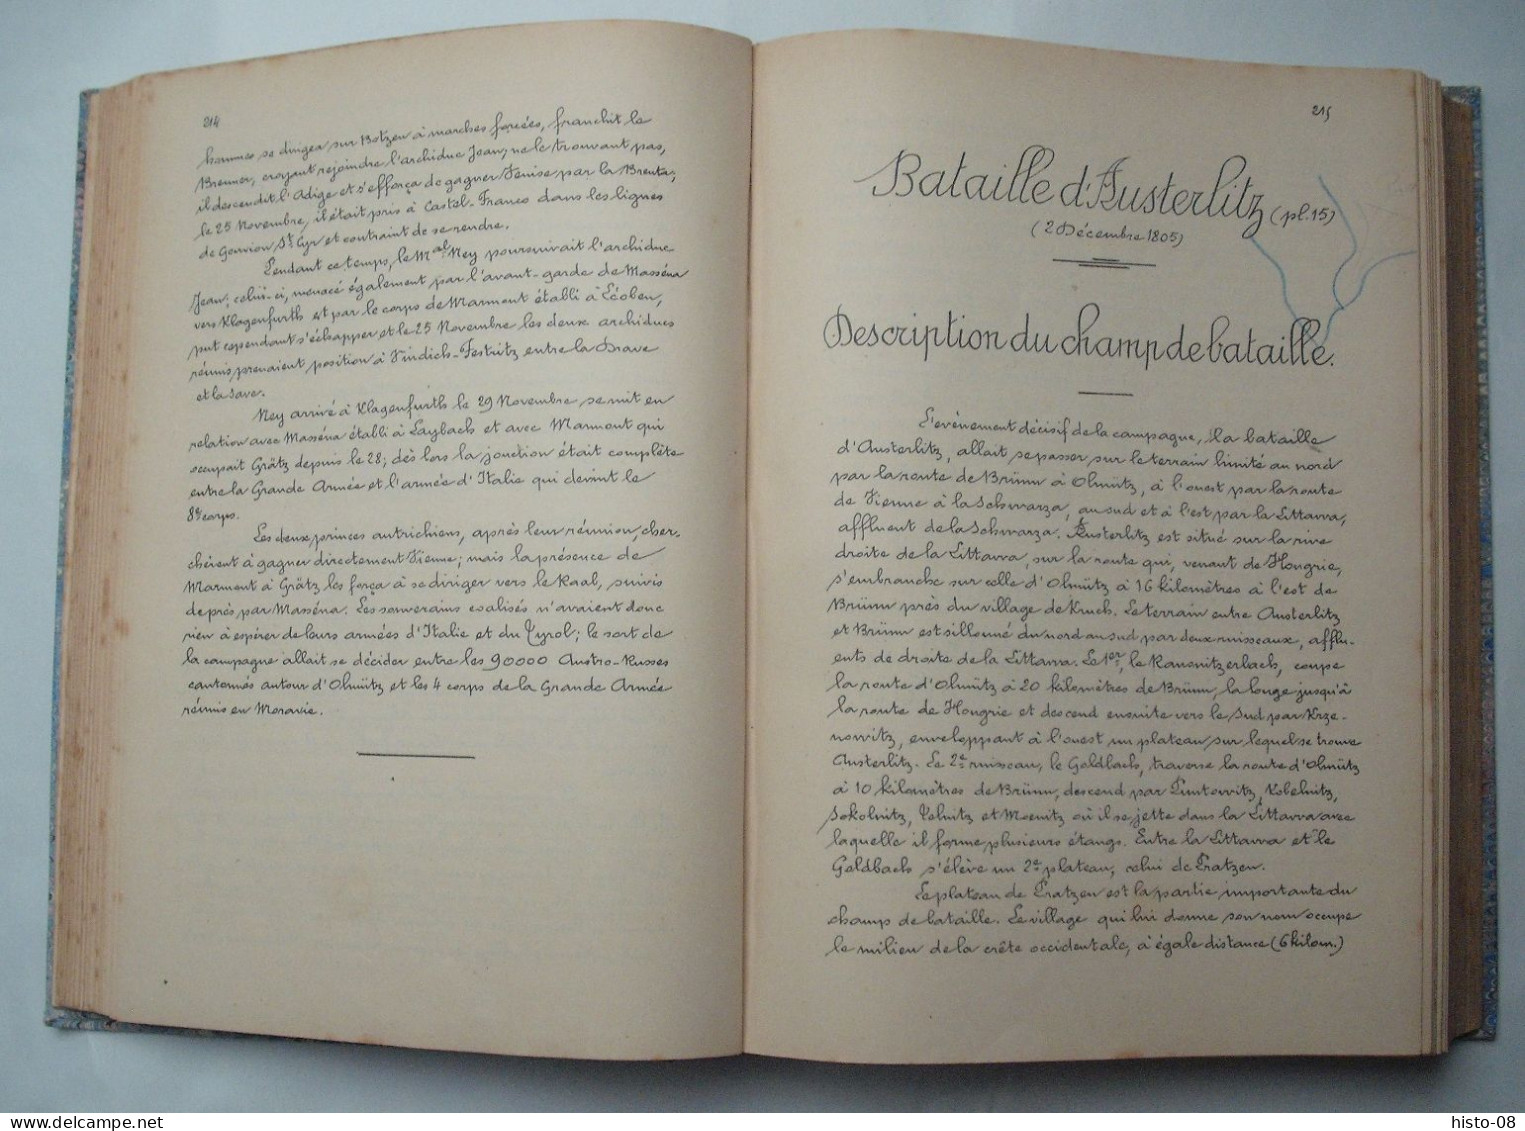 214
hommes se dirigea sur Botzen à marches forcées, franchit le
Brenner, croyant rejoindre l'archiduc Jean; ne le trouvant pas,
il descendit l'Adige et s'efforça de gagner Venise par la Brenta;
le 25 Novembre, il était pris à Castel-Franco dans les lignes
de Gouvion St Cyr et contraint de se rendre.
Pendant ce temps, le Mal Ney poursuivait l'archiduc
Jean; celui-ci, menacé également par l'avant-garde de Masséna
vers Klagenfurth et par le corps de Marmont établi à Léoben,
put cependant s'échapper et le 25 Novembre les deux archiducs
réunis prenaient position à Vindich-Festritz entre la Drave
et la Save.
Ney arrivé à Klagenfurth le 29 Novembre se mit en
relation avec Masséna établi à Laybach et avec Marmont qui
occupait Grätz depuis le 28; dès lors la jonction était complète
entre la Grande Armée et l'armée d'Italie qui devint le
8e corps.
Les deux princes autrichiens, après leur réunion, cher-
chèrent à gagner directement Vienne; mais la présence de
Marmont à Grätz les força à se diriger vers le Raab, suivis
de près par Masséna. Les souverains coalisés n'avaient donc
rien à espérer de leurs armées d'Italie et du Tyrol; le sort de
la campagne allait se décider entre les 90000 Austro-Russes
cantonnés autour d'Olmütz et les 4 corps de la Grande Armée
réunis en Moravie.
215
Bataille d'Austerlitz (pl. 15)
(2 Décembre 1805)
Description du champ de bataille.
L'événement décisif de la campagne, la bataille
d'Austerlitz, allait se passer sur le terrain limité au nord
par la route de Brünn à Olmütz, à l'ouest par la route
de Vienne à la Schwarza, au sud et à l'est par la Littawa,
affluent de la Schwarza. Austerlitz est situé sur la rive
droite de la Littawa, sur la route qui, venant de Hongrie,
s'embranche sur celle d'Olmütz à 16 kilomètres à l'est de
Brünn près du village de Kruch. Le terrain entre Austerlitz
et Brünn est sillonné du nord au sud par deux ruisseaux, afflu-
ents de droite de la Littawa. Le 1er, le Rausnitzerbach, coupe
la route d'Olmütz à 20 kilomètres de Brünn, la longe jusqu'à
la route de Hongrie et descend ensuite vers le Sud par Krze-
nowitz, enveloppant à l'ouest un plateau sur lequel se trouve
Austerlitz. Le 2e ruisseau, le Goldbach, traverse la route d'Olmütz
à 10 kilomètres de Brünn, descend par Puntowitz, Kobelnitz,
Sokolnitz, Telnitz et Moenitz où il se jette dans la Littawa avec
laquelle il forme plusieurs étangs. Entre la Littawa et le
Goldbach s'élève un 2e plateau, celui de Pratzen.
Le plateau de Pratzen est la partie importante du
champ de bataille. Le village qui lui donne son nom occupe
le milieu de la crête occidentale, à égale distance (6 kilom.)
histo-08